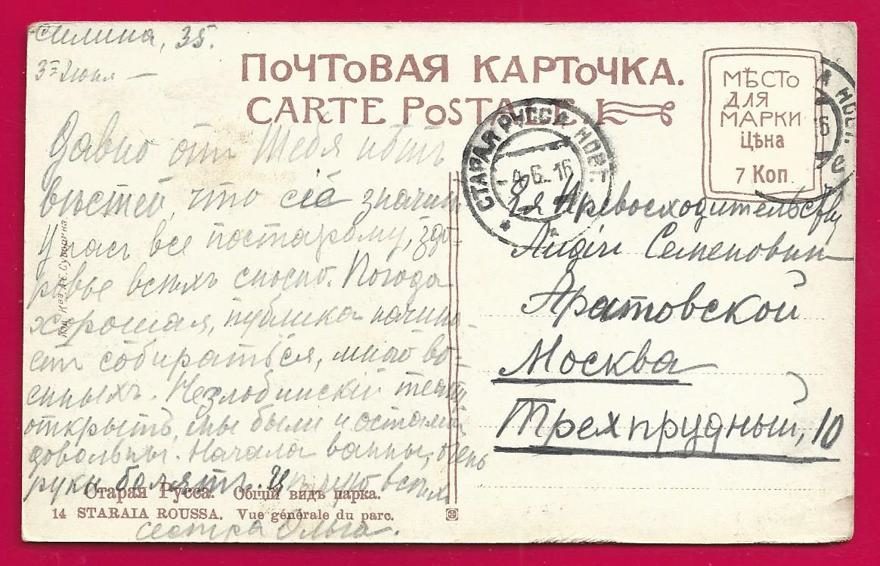 Силина, 35.
3го Июня —
ПОЧТОВАЯ КАРТОЧКА.
CARTE POSTALE
МѢСТО
ДЛЯ
МАРКИ
Цѣна
7 Коп.
СТАРАЯ РУССА НОВГ.
4.6.16
Давно отъ Тебя нѣтъ
вѣстей, что сіе значитъ
У насъ все постарому, здо-
ровье всѣхъ сносно. Погода
хорошая, публика начина-
етъ собираться, много во-
енныхъ. Незлобинскій театръ
открытъ, мы были и остались
довольны. Начала ванны, очень
руки болятъ. Цѣлую всѣхъ
сестра Ольга.
Ея Превосходительству
Лидіи Семеновнѣ
Аратовской
Москва
Трехпрудный, 10
Старая Русса. Общій видъ парка.
14 STARAIA ROUSSA. Vue générale du parc.